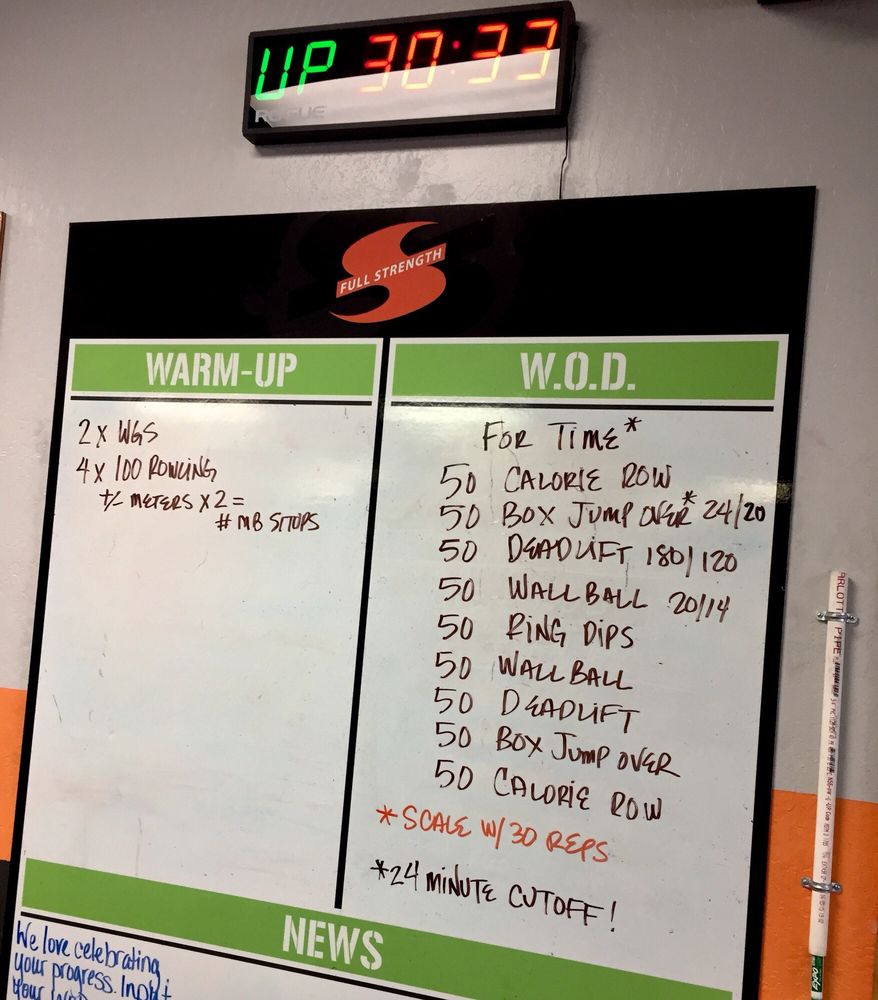 UP 30:33
ROGUE
FULL STRENGTH
WARM-UP
2 X WGS
4 X 100 ROWLING
+/- METERS X 2 =
# MB SITUPS
W.O.D.
FOR TIME*
50 CALORIE ROW
50 BOX JUMP OVER* 24/20
50 DEADLIFT 180/120
50 WALLBALL 20/14
50 RING DIPS
50 WALLBALL
50 DEADLIFT
50 BOX JUMP OVER
50 CALORIE ROW
*SCALE W/30 REPS
*24 MINUTE CUTOFF!
NEWS
We love celebrating
your progress. Input
your
PIPE
EXPO